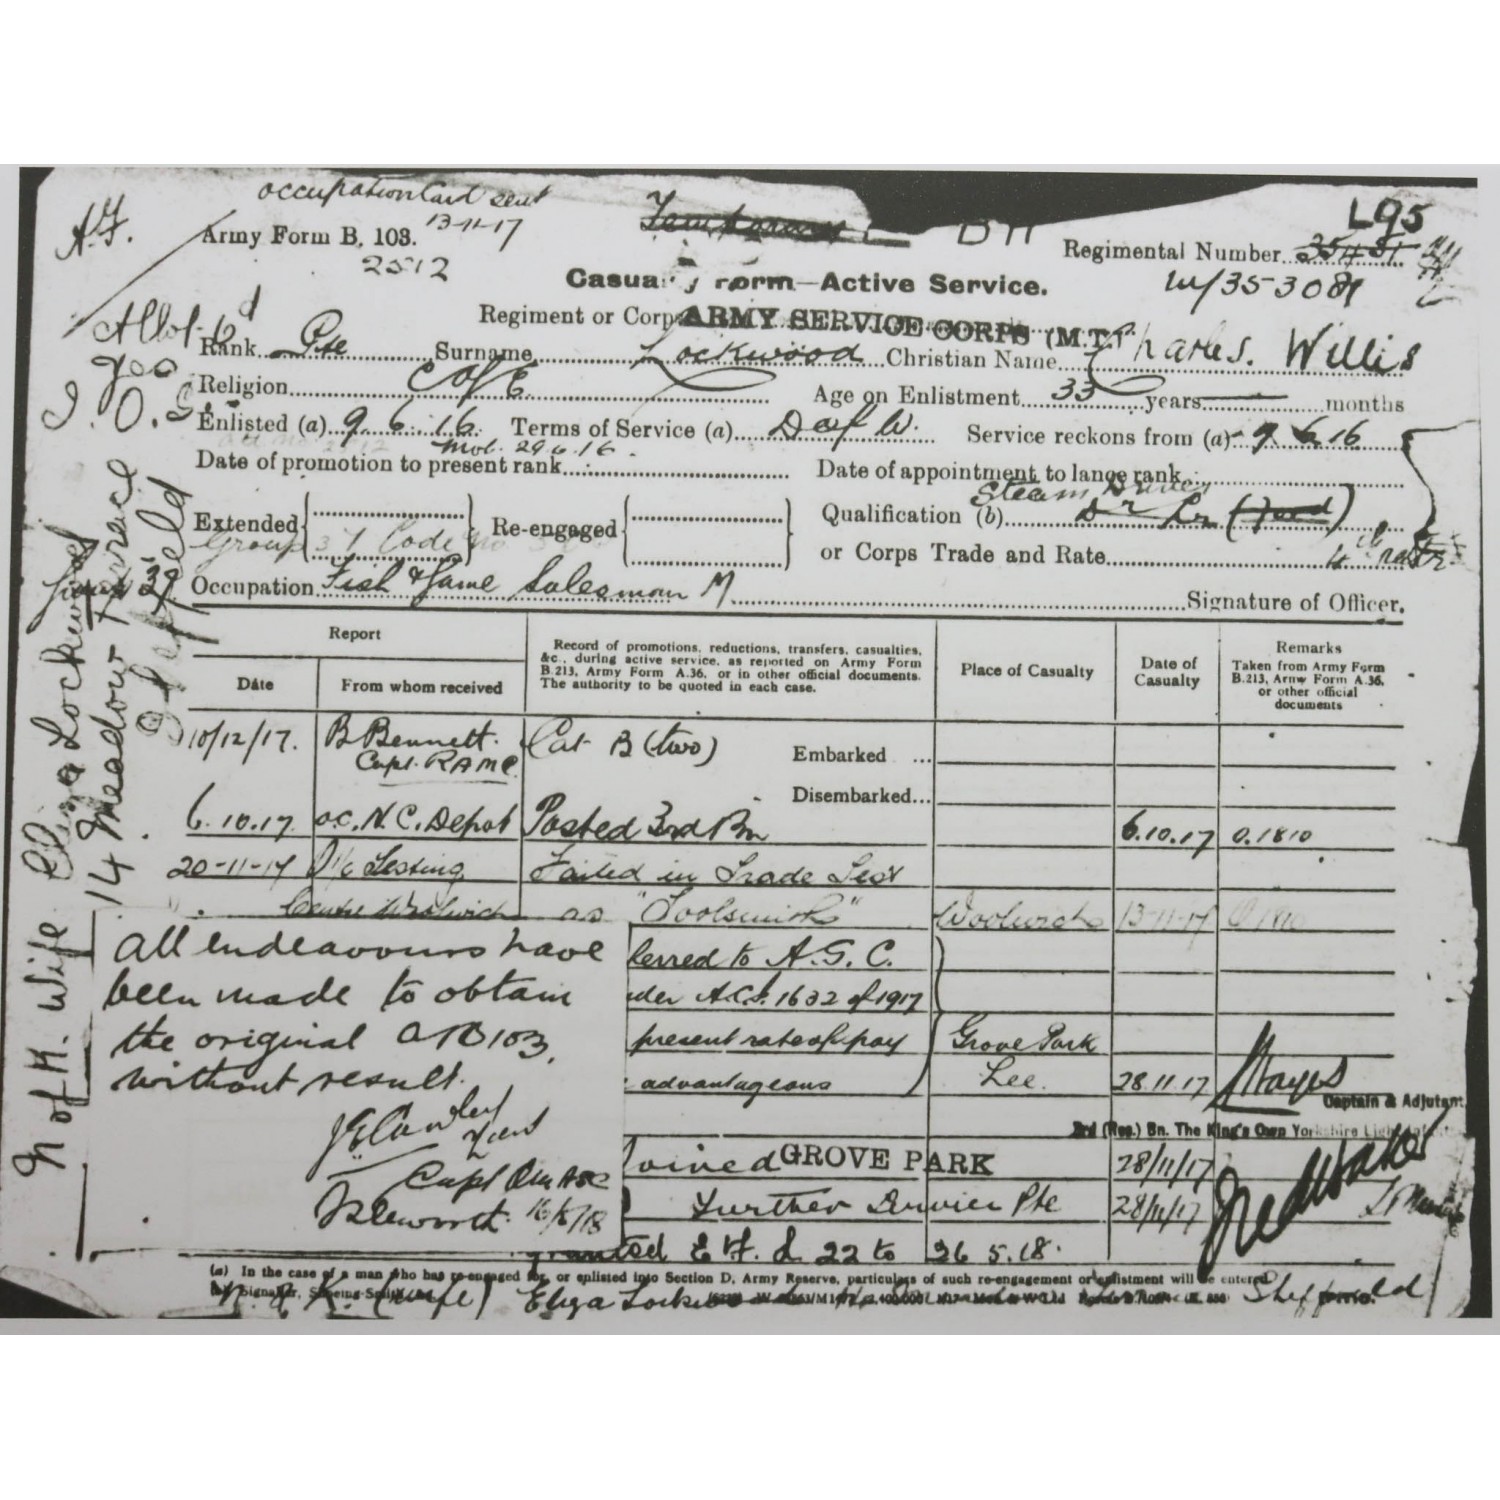 occupation Card sent
13-11-17
A.F.
Army Form B. 103.
2512
L95
Regimental Number 35481
M/353081
Casualty Form—Active Service.
Regiment or Corps ARMY SERVICE CORPS (M.T.)
Rank Pte Surname Lockwood Christian Name Charles. Willis
Religion C of E. Age on Enlistment 33 years months
Enlisted (a) 9.6.16. Terms of Service (a) D of W. Service reckons from (a) 9.6.16
Mob. 29.6.16.
Date of promotion to present rank Date of appointment to lance rank
Steam Driver
Extended Re-engaged Qualification (b)
Group 37 Code No
or Corps Trade and Rate
Occupation Fish & Game Salesman M Signature of Officer.
N of K. Wife Eliza Lockwood
14 Meadow Terrace
Sheffield
Report
Date
From whom received
Record of promotions, reductions, transfers, casualties, &c., during active service, as reported on Army Form B.213, Army Form A.36, or in other official documents. The authority to be quoted in each case.
Place of Casualty
Date of Casualty
Remarks
Taken from Army Form B.213, Army Form A.36, or other official documents
10/12/17. B Bennett. Cat B (two) Embarked ...
Capt. RAMC.
Disembarked...
6.10.17. O.C. N.C. Depot Posted 3rd Bn 6.10.17 O.1810
20-11-17 O i/c Testing Failed in Trade Test
Centre Woolwich as "Toolsmith" Woolwich 13-11-17 O 1810
All endeavours have
been made to obtain
the original AFB103,
without result.
Capt
Isleworth 16/8/18
ferred to A.S.C.
der A.C.I. 1632 of 1917
present rate of pay Grove Park
advantageous Lee. 28.11.17 Hayes
Captain & Adjutant
3rd (Res.) Bn. The King's Own Yorkshire Light
Joined GROVE PARK 28/11/17
Further Service Pte 28/11/17
granted 22 to 26.5.18.
(a) In the case of a man who has re-engaged for, or enlisted into Section D, Army Reserve, particulars of such re-engagement or enlistment will be entered.
N. of K. (wife) Eliza Lockwood Sheffield